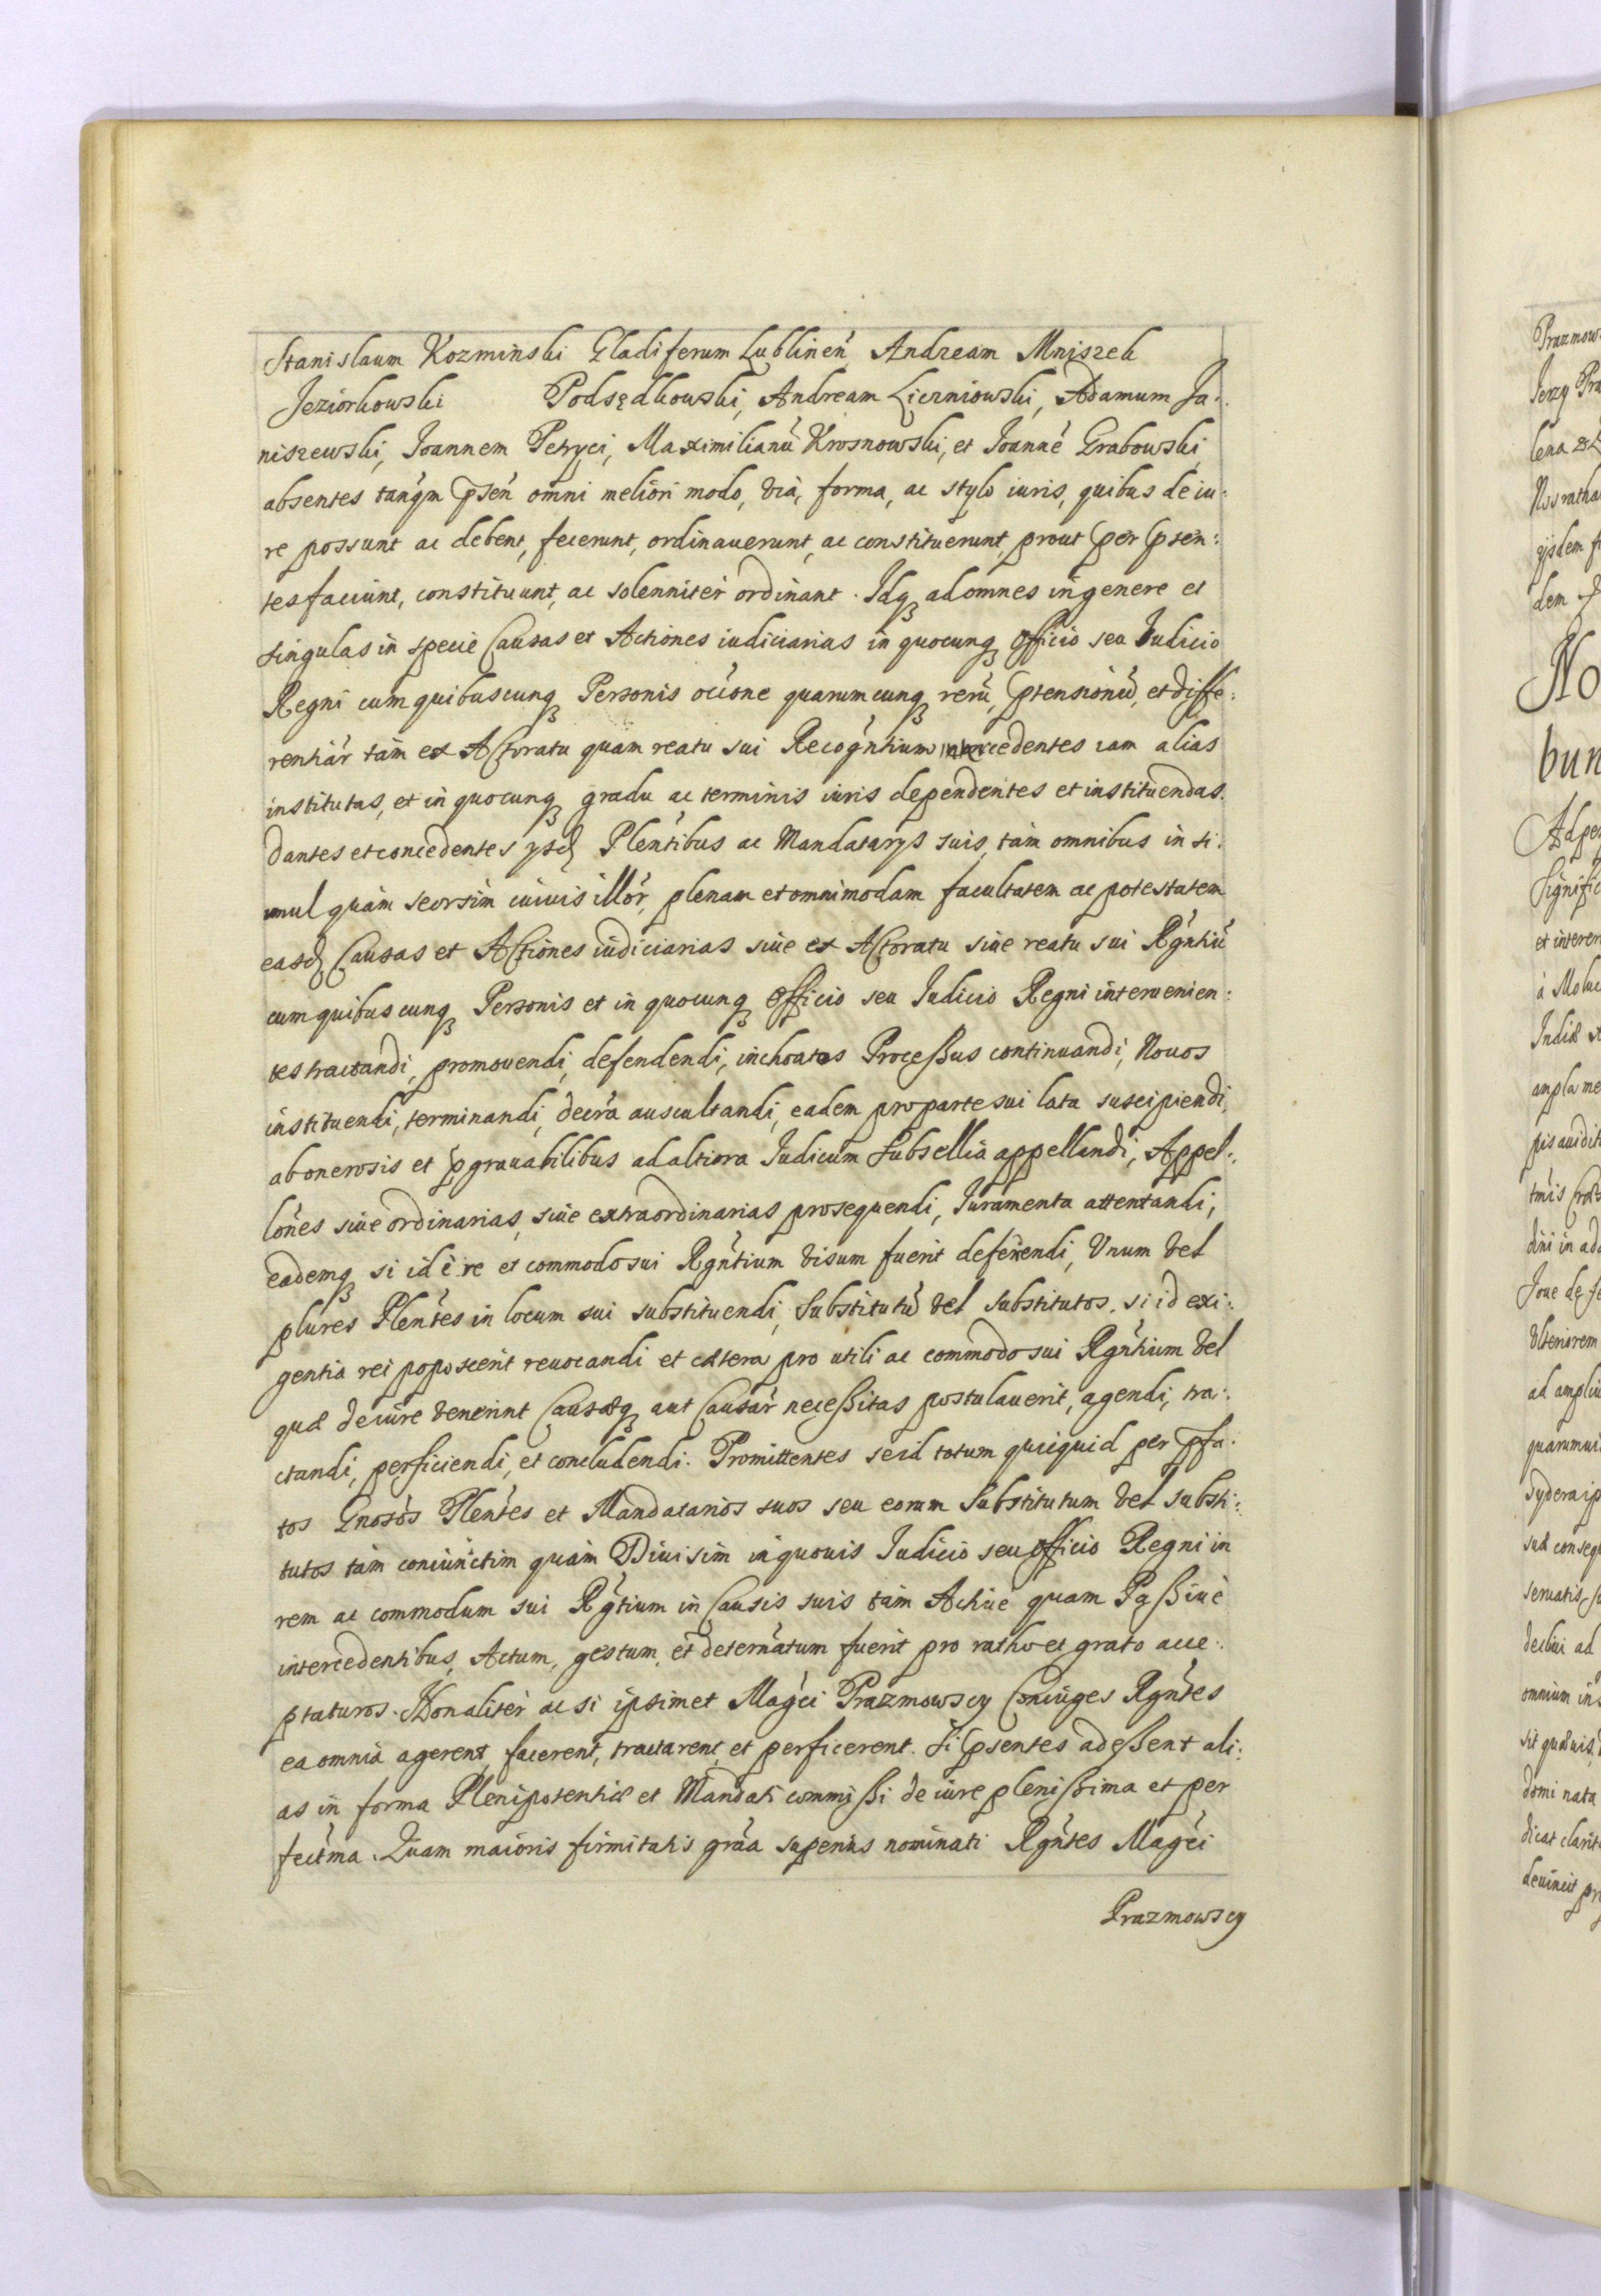 Stanislaum Kozminski Gladiferum Lublinen̄ Andream Mniszek
Jeziorkowski Podsędkowski, Andream Cierniowski, Adamum Ja:
niszewski, Joannem Petryci, Maximilianū Krosnowski, et Joannē Grabowski
absentes tanq̄m p̄sen̄ omni meliori modo, via, forma, ac stylo iuris, quibus de iu:
re possunt ac debent, fecerunt, ordinauerunt, ac constituerunt, prout per p̄sen:
tes faciunt, constituunt, ac solenniter ordinant. Idq̨ ad omnes in genere et
singulas in specie Causas et Actiones iudiciarias in quocunq̨ Officio seu Iudicio
Regni cum quibuscunq̨ Personis oc̄ione quarumcunq̨ rerū, p̄tensionū, et diffe:
rentiar̄ tam ex Actoratu quam reatu sui Recogn̄tium intercedentes iam alias
institutas, et in quocunq̨ gradu ac terminis iuris dependentes et instituendas.
dantes et concedentes ysd Plen̄tibus ac Mandatarys suis, tam omnibus in si:
mul quam seorsim cuiuis illor̄, plenam et omnimodam facultatem ac potestatem
easd Causas et Actiones iudiciarias siue ex Actoratu siue reatu sui Rgn̄tiū
cum quibuscunq̨ Personis et in quocunq̨ Officio seu Iudicio Regni interuenien:
tes tractandi, promouendi, defendendi, inchoatos Processus continuandi, Nouos
instituendi, terminandi, decr̄a auscultandi, eadem pro parte sui lata suscipiendi,
ab onerosis et p̱grauabilibus ad altiora Iudicum Subsellia appellandi, Appel:
lōnes siue ordinarias, siue extraordinarias prosequendi, Iuramenta attentandi,
eademq̨ si id ē re et commodo sui Rgn̄tium visum fuerit deferendi, Unum vel
plures Plen̄tes in locum sui substituendi, Substitutū vel Substitutos, si id exi:
gentia rei poposcerit reuocandi et cætera pro utili ac commodo sui Rgn̄tium vel
quæ de iure venerint Causæq̨ aut Causar̄ necessitas postulauerit, agendi, tra:
ctandi, perficiendi, et concludendi. Promittentes se id totum quicquid per p̄fa:
tos Gn̄osos Plen̄tes et Mandatarios suos seu eorum Substitutum vel substi:
tutos tam coniunctim quam Diuisim in quouis Iudicio seu Officio Regni in
rem ac commodum sui Rḡtium in Causis suis tam Actiue quam Passiue
intercedentibus, Actum, gestum, et determ̄atum fuerit pro ratho et grato acce:
ptaturos. Nonaliter ac si ipsimet Maḡci Prazmowscy Coniuges Rgn̄tes
ea omnia agerent, facerent, tractarent, et perficerent. Si p̄sentes adessent ali:
as in forma Plenipotentiæ et Mandati commissi de iure plenissima et per
fect̄ma. Quam maioris firmitatis gr̄a superius nominati Rgn̄tes Maḡci
Prazmowscy